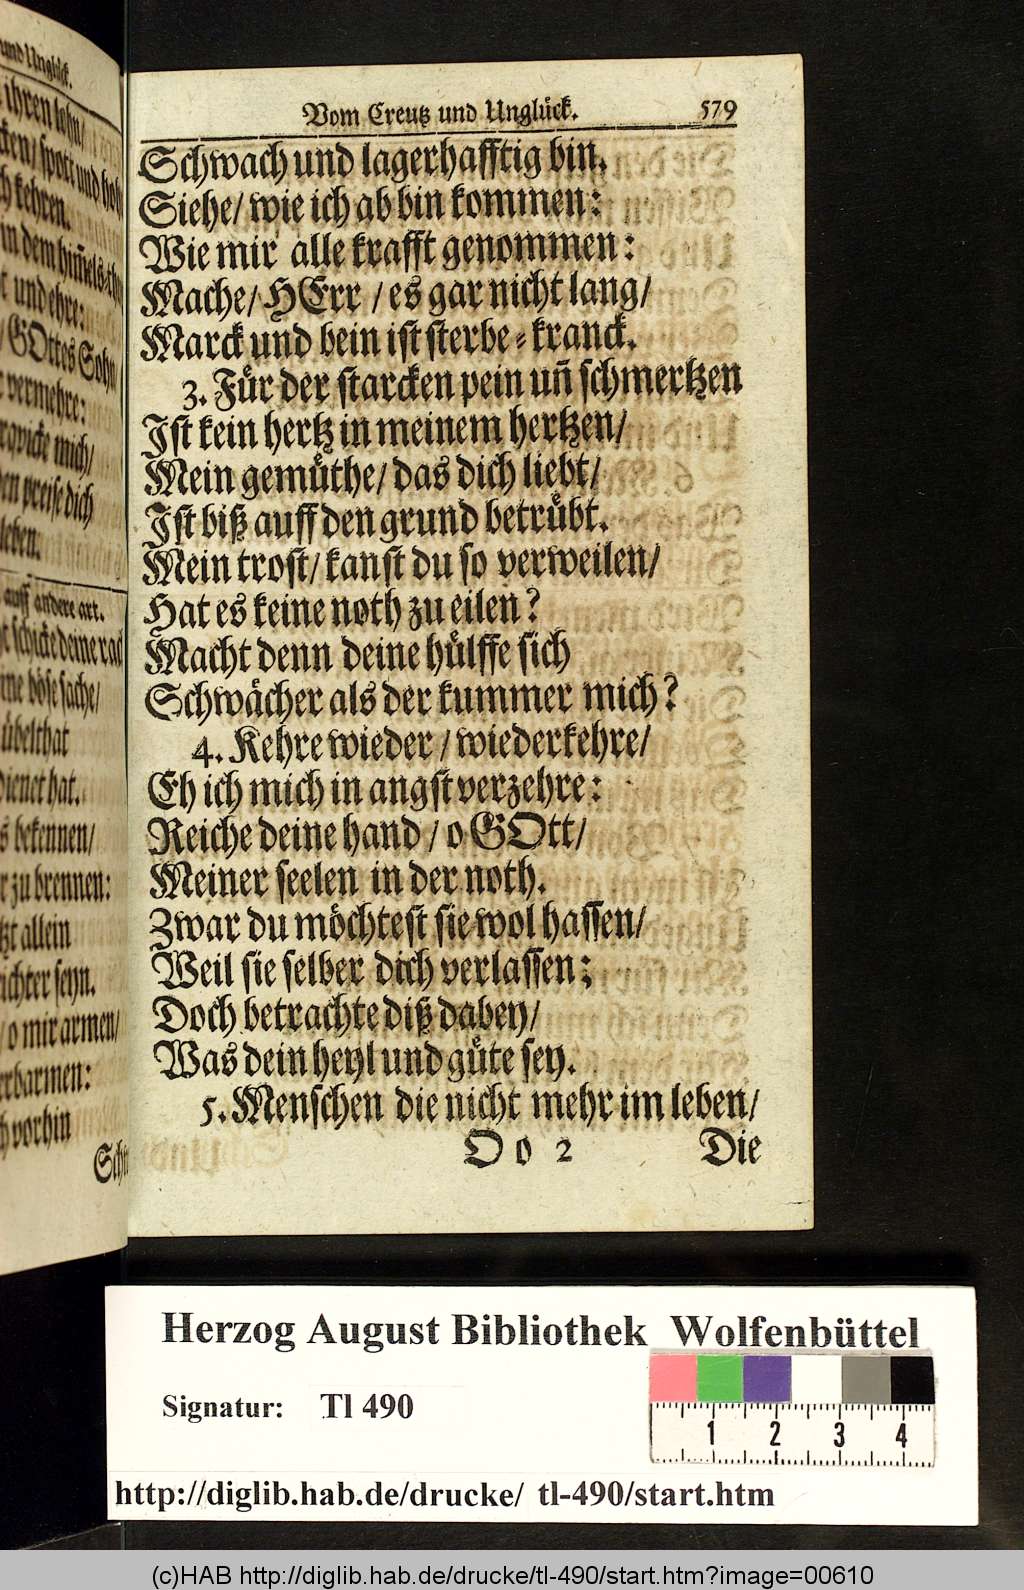 und Unglück.
ihren lohn/
spott und hohn
kehren.
in dem him̃els-thron
und ehre:
GOttes Sohn/
vermehre:
mich/
preise dich
leben.
auff andere art.
schicke deine rach
böse sache/
übelthat
dienet hat.
bekennen/
zu brennen:
allein
richter seyn.
o mir armen/
erbarmen:
vorhin
Vom Creutz und Unglück. 579
Schwach und lagerhafftig bin.
Siehe/ wie ich ab bin kommen:
Wie mir alle krafft genommen:
Mache/ HErr / es gar nicht lang/
Marck und bein ist sterbe-kranck.
3. Für der starcken pein uñ schmertzen
Ist kein hertz in meinem hertzen/
Mein gemüthe/ das dich liebt/
Ist biß auff den grund betrübt.
Mein trost/ kanst du so verweilen/
Hat es keine noth zu eilen?
Macht denn deine hülffe sich
Schwächer als der kummer mich?
4. Kehre wieder / wiederkehre/
Eh ich mich in angst verzehre:
Reiche deine hand / o GOtt/
Meiner seelen in der noth.
Zwar du möchtest sie wol hassen/
Weil sie selber dich verlassen:
Doch betrachte diß dabey/
Was dein heyl und güte sey.
5. Menschen die nicht mehr im leben/
O o 2 Die
Herzog August Bibliothek Wolfenbüttel
Signatur: Tl 490
1 2 3 4
http://diglib.hab.de/drucke/ tl-490/start.htm
(c)HAB http://diglib.hab.de/drucke/tl-490/start.htm?image=00610